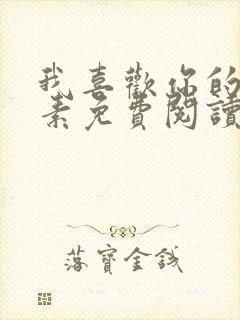 我喜歡你的
素免費閱讀
落寶金錢